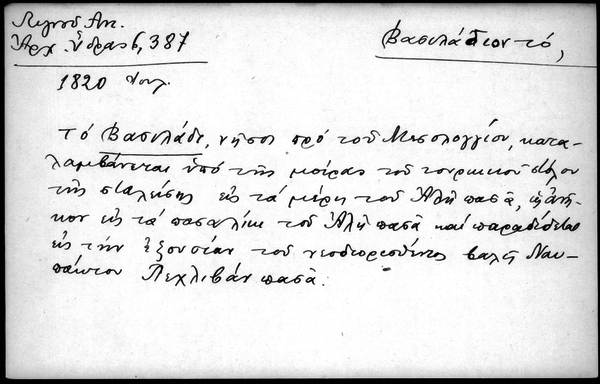 Λιγνοῦ Ἀν.
Ἀρχ. Ὕδρας 6, 387
Βασιλάδιον τό,
1820
Τό Βασιλάδι, νῆσοι πρό τοῦ Μεσολογγίου, κατα-
λαμβάνεται ὑπό τῆς μοίρας τοῦ τουρκικοῦ στόλου
τῆς σταλείσης εἰς τά μέρη τοῦ Ἀλῆ πασᾶ, ἀνῆ-
κον εἰς τά πασαλίκι τοῦ Ἀλῆ πασᾶ καί παραδίδεται
εἰς τήν ἐξουσίαν τοῦ νεοδιορισθέντος βαλῆ Ναυ-
πάκτου Πεχλιβάν πασᾶ.